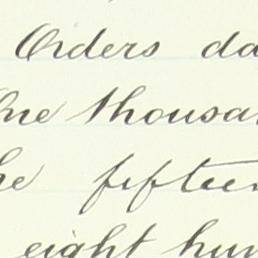 Orders da
One thousan
he fifteen
eight hun